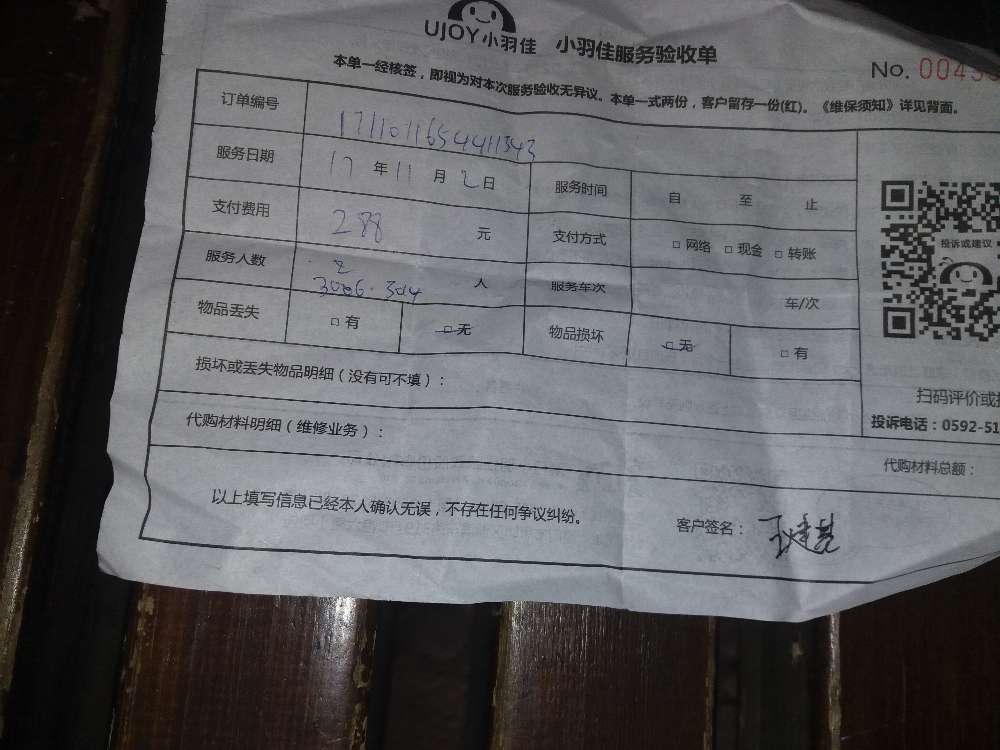 UJOY小羽佳 小羽佳服务验收单
No. 00453
本单一经核签，即视为对本次服务验收无异议。本单一式两份，客户留存一份(红)。《维保须知》详见背面。
订单编号 1711011654411343
服务日期 17 年 11 月 2 日 服务时间 自 至 止
支付费用 288 元 支付方式 □ 网络 □ 现金 □ 转账
投诉或建议
服务人数 2 人 服务车次 车/次
3066.304
物品丢失 □ 有 □ 无 物品损坏 □ 无 □ 有
损坏或丢失物品明细（没有可不填）：
扫码评价或
代购材料明细（维修业务）：
投诉电话：0592-51
代购材料总额：
以上填写信息已经本人确认无误，不存在任何争议纠纷。
客户签名：